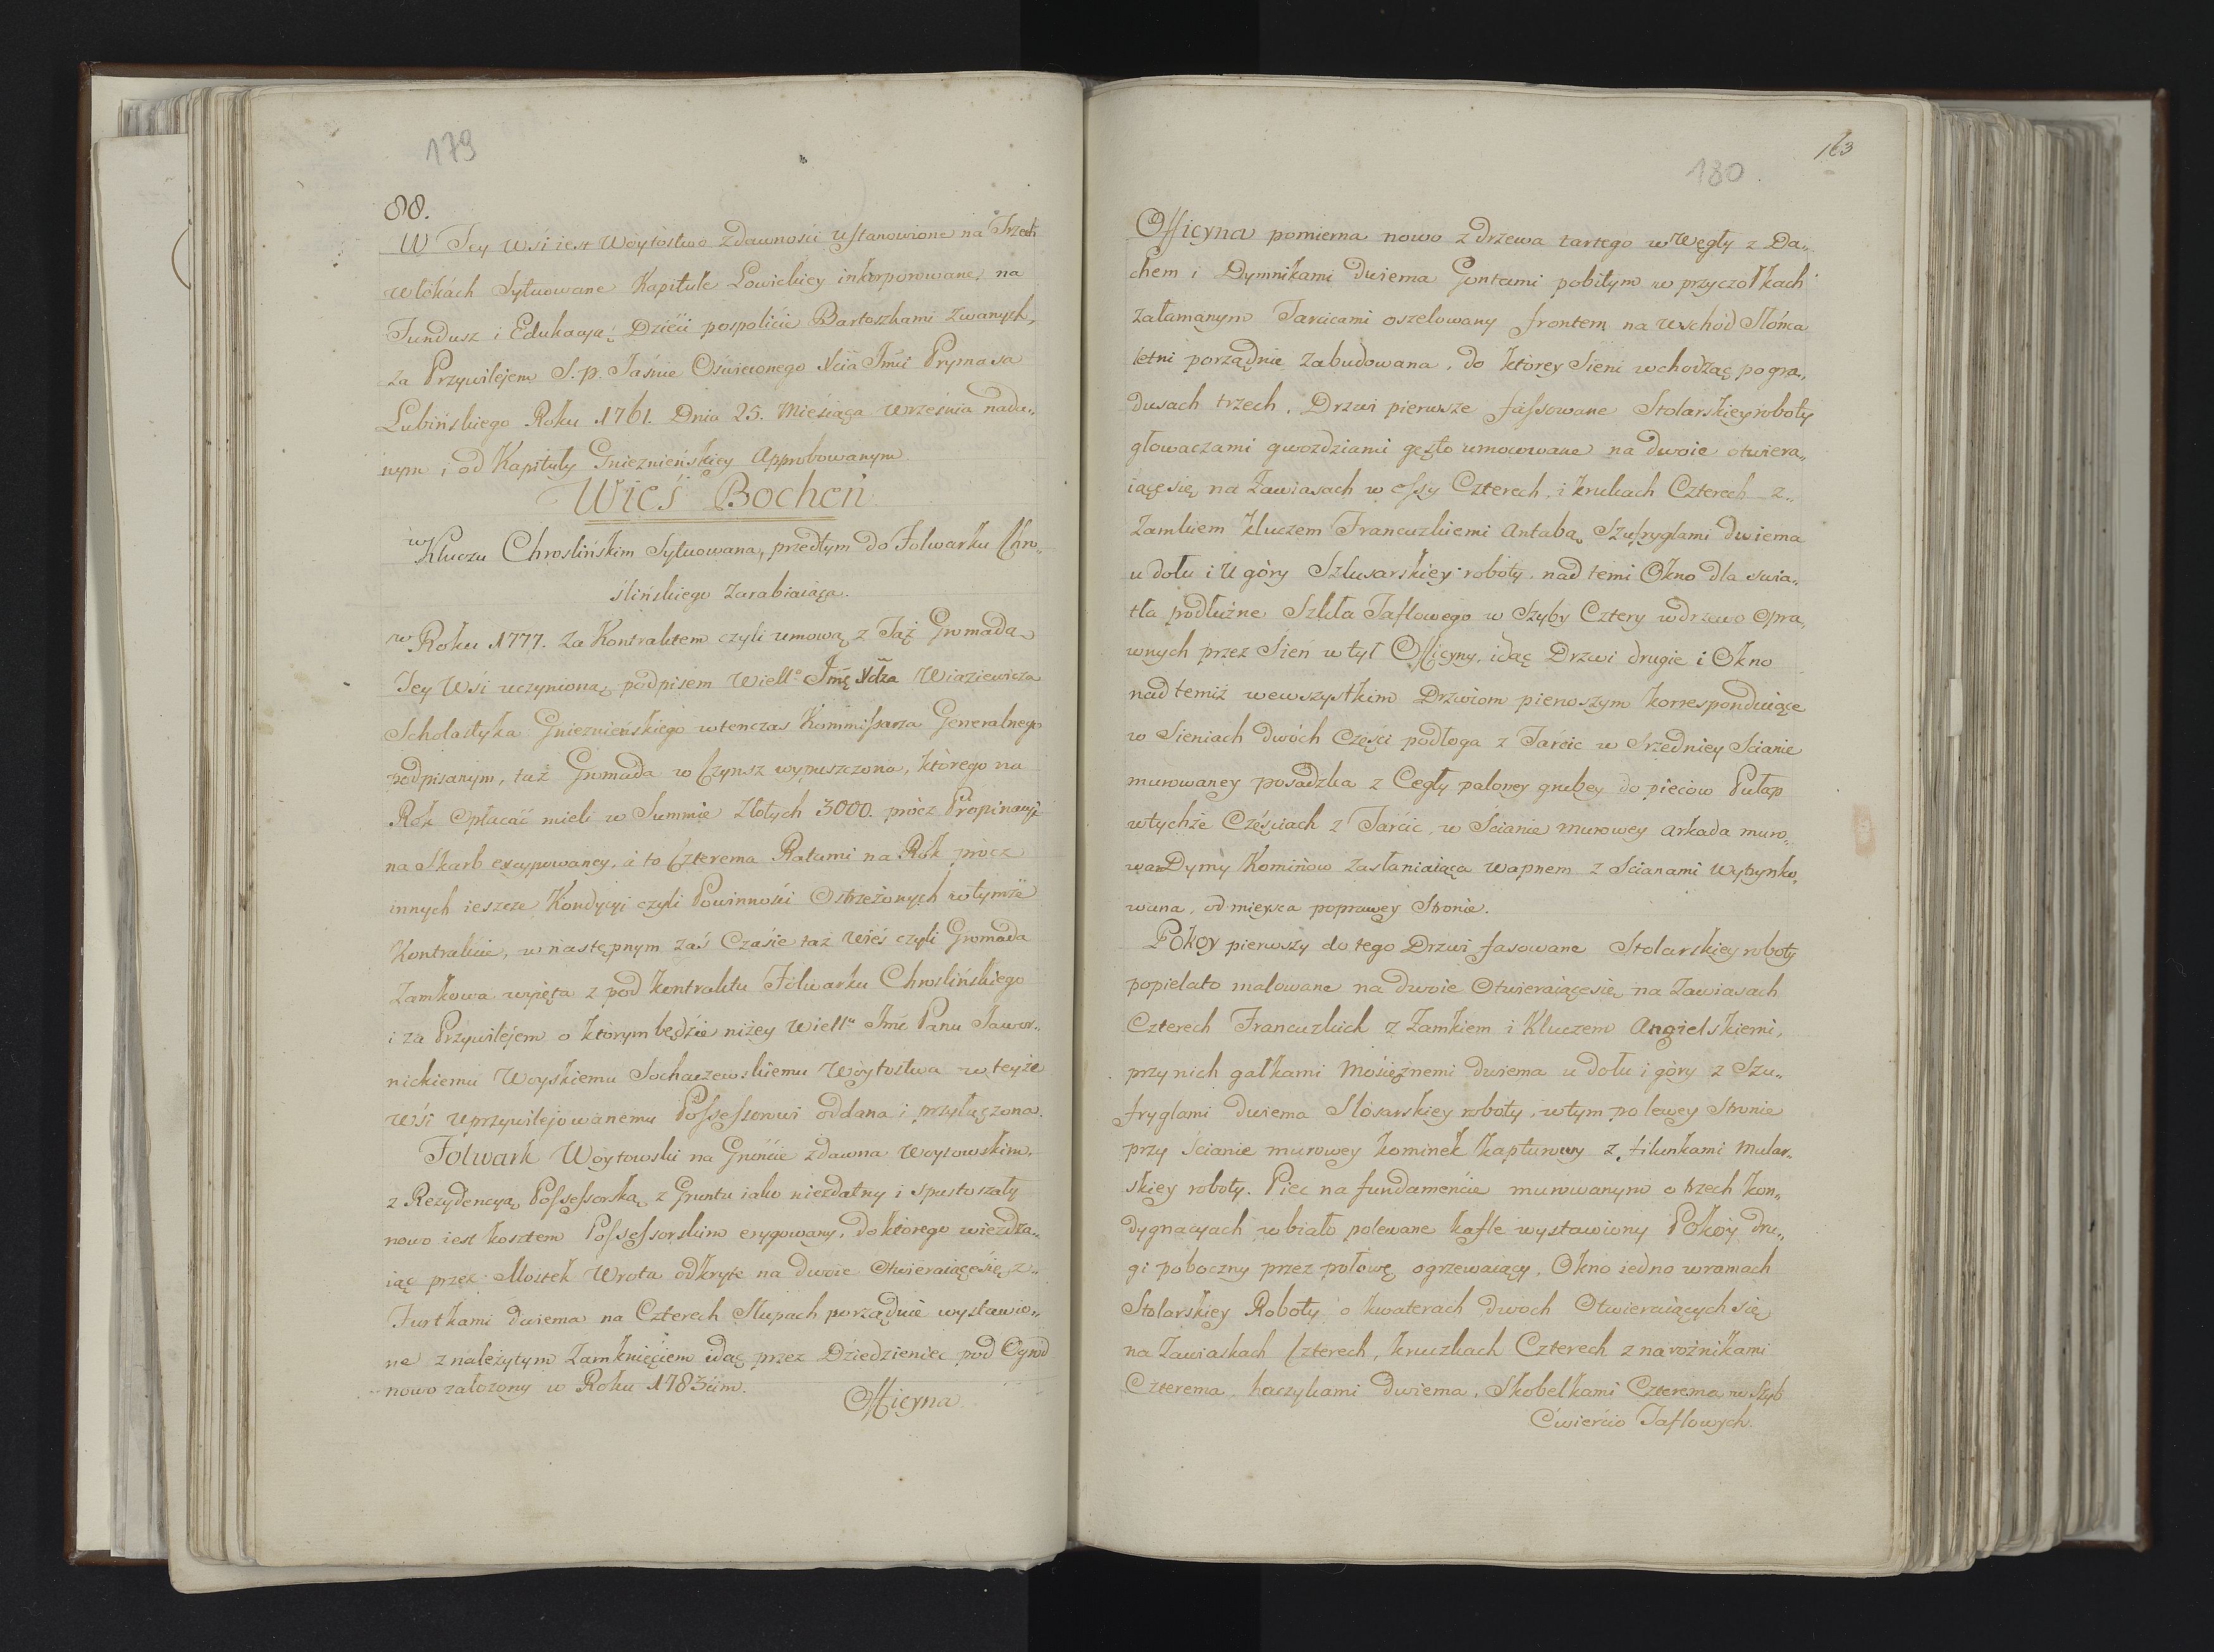 179
88.
W Tey Wsi iest Woytostwo zdawności ustanowione na Trzech
Włokách Sytuowane Kapitule Łowickiey inkorporowane, na
Fundusz i Edukacyą Dzieci pospolicie Bartoszkami zwanych,
za Przywilejem S. p. Jaśnie Oświeconego Xcia Jmći Prymasa
Łubińskiego Roku 1761. Dnia 25. Miesiąca Września nada„
nym i od Kapituły Gnieznieńskiey Approbowanym.
Wieś Bocheń
w Kluczu Chroslińskim Sytuowana, przedtym do Folwarku Chro„
ślińskiego zarabiaiąca.
w Roku 1777. za Kontraktem czyli umową z Taż Gromadą
Tey Wśi uczynioną podpisem Wiell° Jmę Xdza Wiaziewicza
Scholastyka Gnieznieńskiego wtenczas Kommissarza Generalnego
podpisanym, taż Gromada w Czynsz wypuszczona, którego na
Rok Opłacáć mieli w Summie Złotych 3000. prócz Propinacyi
na Skarb excypowaney, a to Czterema Ratami na Rok prócz
innych ieszcze Kondycyi czyli Powinności Ostrzeżonych wtymże
Kontrakcie, w następnym zaś Czasie taż Wieś czyli Gromada
Zamkowa wzięta z pod kontraktu Folwarku Chroslińskiego
i za Przywilejem o którym będzie niżey Wiell<sup>u</sup> Jmć Panu Jawor„
nickiemu Woyskiemu Sochaczewskiemu Woytostwa w teyże
Wśi uprzywilejowanemu Possessorowi oddana i przyłączona.
Folwark Woytowski na Gruncie zdawna Woytowskim,
z Rezydencyą Possessorską z Gruntu iako niezdatny i spustoszały
nowo iest kosztem Possessorskim erygowany, do którego wieżdża„
iąc przez Mostek Wrota odkryte na dwoie Otwieraiącesię z„
Furtkami dwiema na Czterech Słupach porządnie wystawio„
ne z należytym Zamknięciem idąc przez Dziedzieniec pod Ogród
nowo założony w Roku 1783cim.
Officyna
163
180
Officyna pomierna nowo z drzewa tartego w Węgły z Da„
chem i Dymnikami dwiema Gontami pobitym w przyczołkach
załamanym Tarcicami oszelowany frontem na wschod Słońca
letni porządnie zabudowana, do którey Sieni wchodząc po gra„
dusach trzech, Drzwi pierwsze fassowane Stolarskiey roboty
głowaczami gwozdziami gęsto umocowane na dwoie otwiera„
iące się na Zawiasach w essy Czterech, i krukach Czterech z„
Zamkiem kluczem Francuzkiemi Antabą Szufryglami dwiema
u dołu i U góry Szlusarskiey roboty, nad temi Okno dla swia„
tła podłużne Szkła Taflowego w Szyby Cztery w drzewo Opra„
wnych przez Sien w tył Officyny, idąc Drzwi drugie i Okno
nad temiż wewszystkim Drzwiom pierwszym korresponduiące
w Sieniach dwóch Części podłoga z Tarcic w Srzedniey Scianie
murowaney posadzka z Cegły paloney grubey do pieców Pułap
wtychże Częściach z Tarcic, w Ścianie murowey arkada muro„
wan Dymy Kominow zasłaniaiąca wapnem z Scianami Wytynko„
wana, od mieysca poprawey Stronie.
Pokoy pierwszy do tego Drzwi fasowane Stolarskiey roboty
popielato malowane na dwoie Otwieraiącesię na Zawiasach
Czterech Francuzkich z Zamkiem i Kluczem Angielskiemi,
przy nich gałkami Mosiężnemi dwiema u dołu i góry z Szu„
fryglami dwiema Slosarskiey roboty, w tym po lewey stronie
przy ścianie murowey kominek kapturowy z filunkami Mular„
skiey roboty. Piec na fundamencie murowanym o trzech kon„
dygnacyach w biało polewane kafle wystawiony Pokoy dru„
gi poboczny przez połowę ogrzewaiący, Okno iedno w ramach
Stolarskiey Roboty o kwaterach dwoch Otwieraiących się
na Zawiaskach Czterech, kruczkach Czterech z narożnikami
Czterema haczykami dwiema, Skobelkami Czterema w Szyb
Cwierćio Taflowych.